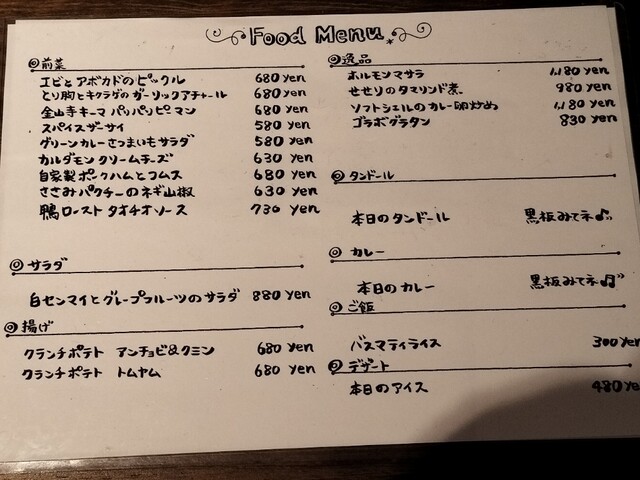 Food Menu
◎前菜
エビとアボカドのピックル 680 yen
とり胸とキクラゲのガーリックアチャール 680 yen
金山寺キーマ パリパリピーマン 680 yen
スパイスザーサイ 580 yen
グリーンカレーさつまいもサラダ 580 yen
カルダモンクリームチーズ 630 yen
自家製ポークハムとコムス 680 yen
ささみパクチーのネギ山椒 630 yen
鴨ロースト タオチオソース 730 yen
◎サラダ
白センマイとグレープフルーツのサラダ 880 yen
◎揚げ
クランチポテト アンチョビ&クミン 680 yen
クランチポテト トムヤム 680 yen
◎逸品
ホルモンマサラ 1,180 yen
せせりのタマリンド煮 980 yen
ソフトシェルのカレー卵炒め 1,180 yen
ゴラボグラタン 830 yen
◎タンドール
本日のタンドール 黒板みてネ♪
◎カレー
本日のカレー 黒板みてネ♫
◎ご飯
バスマティライス 300 yen
◎デザート
本日のアイス 480 yen